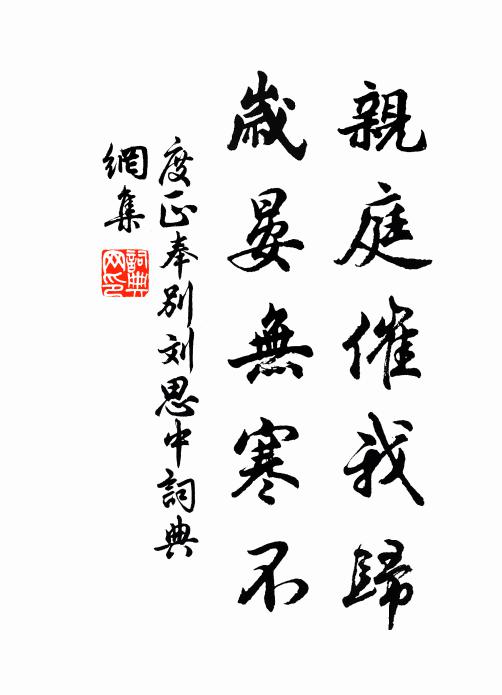 親庭催我歸
歲晏無寒不
度正奉別刘思中詞典
網集
詞典
网印